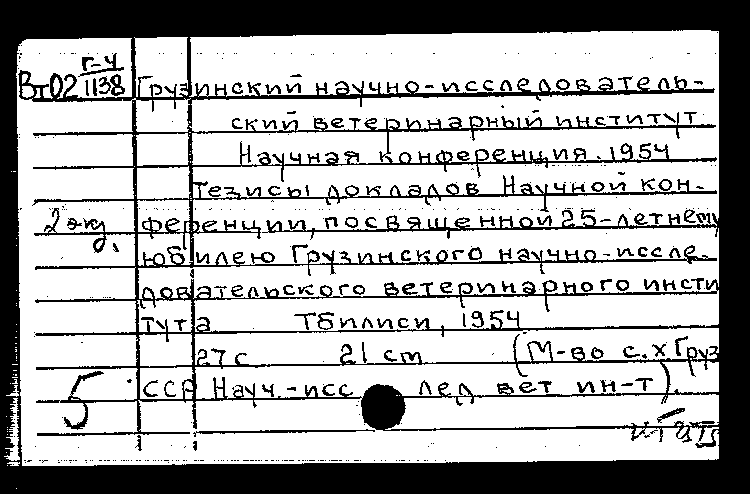 Г-4
Вт02 1138 Грузинский научно-исследователь-
ский ветеринарный институт
Научная конференция. 1954
Тезисы докладов Научной кон-
2 экз. ференции, посвященной 25-летнему
юбилею Грузинского научно-иссле-
довательского ветеринарного инсти
тута Тбилиси, 1954
27 с 21 cm (М-во с. х Груз
5 ССР Науч.-исслед вет ин-т).